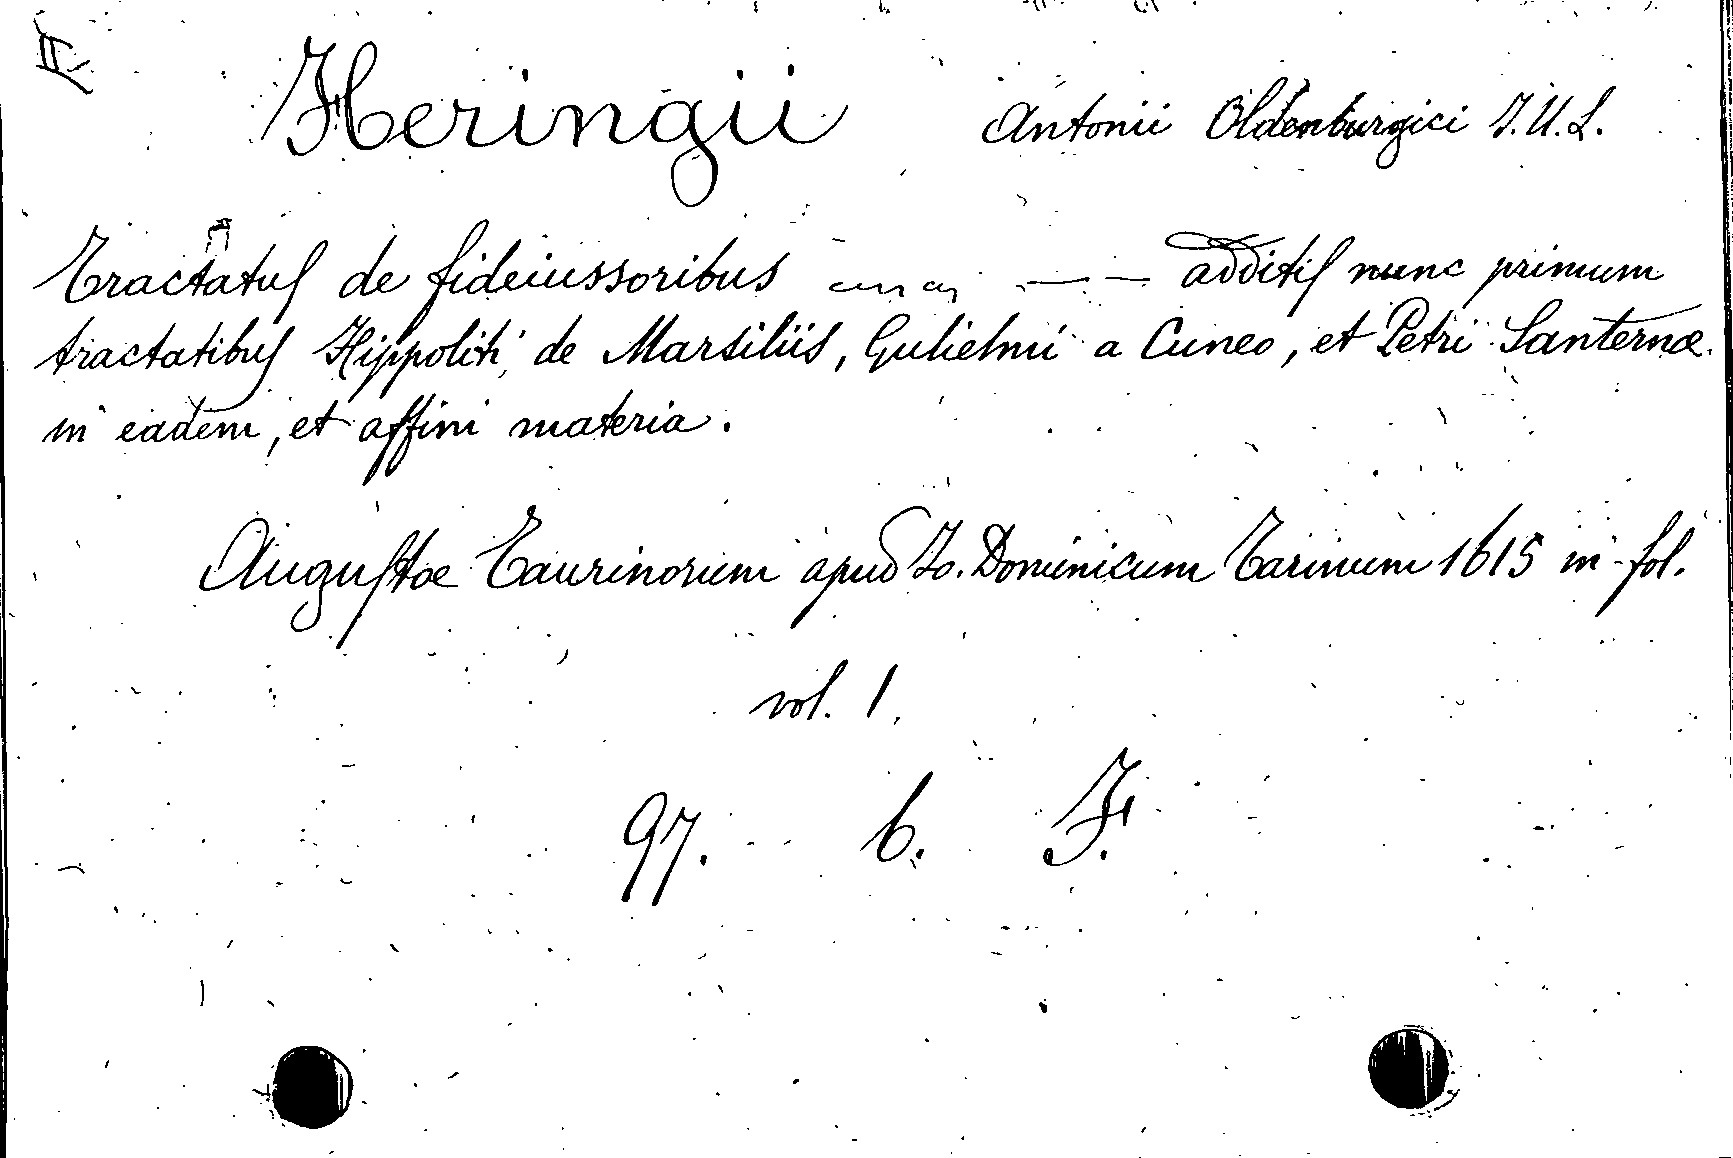 Heringii Antonii Oldenburgici J.U.L.
Tractatus de fideiussoribus — — additis nunc primum
tractatibus Hippoliti de Marsiliis, Gulielmi a Cuneo, et Petri Santernæ
in eadem, et affini materia.
Augustæ Taurinorum apud Io. Dominicum Tarinum 1615 in-fol.
vol. 1.
97. b. F.